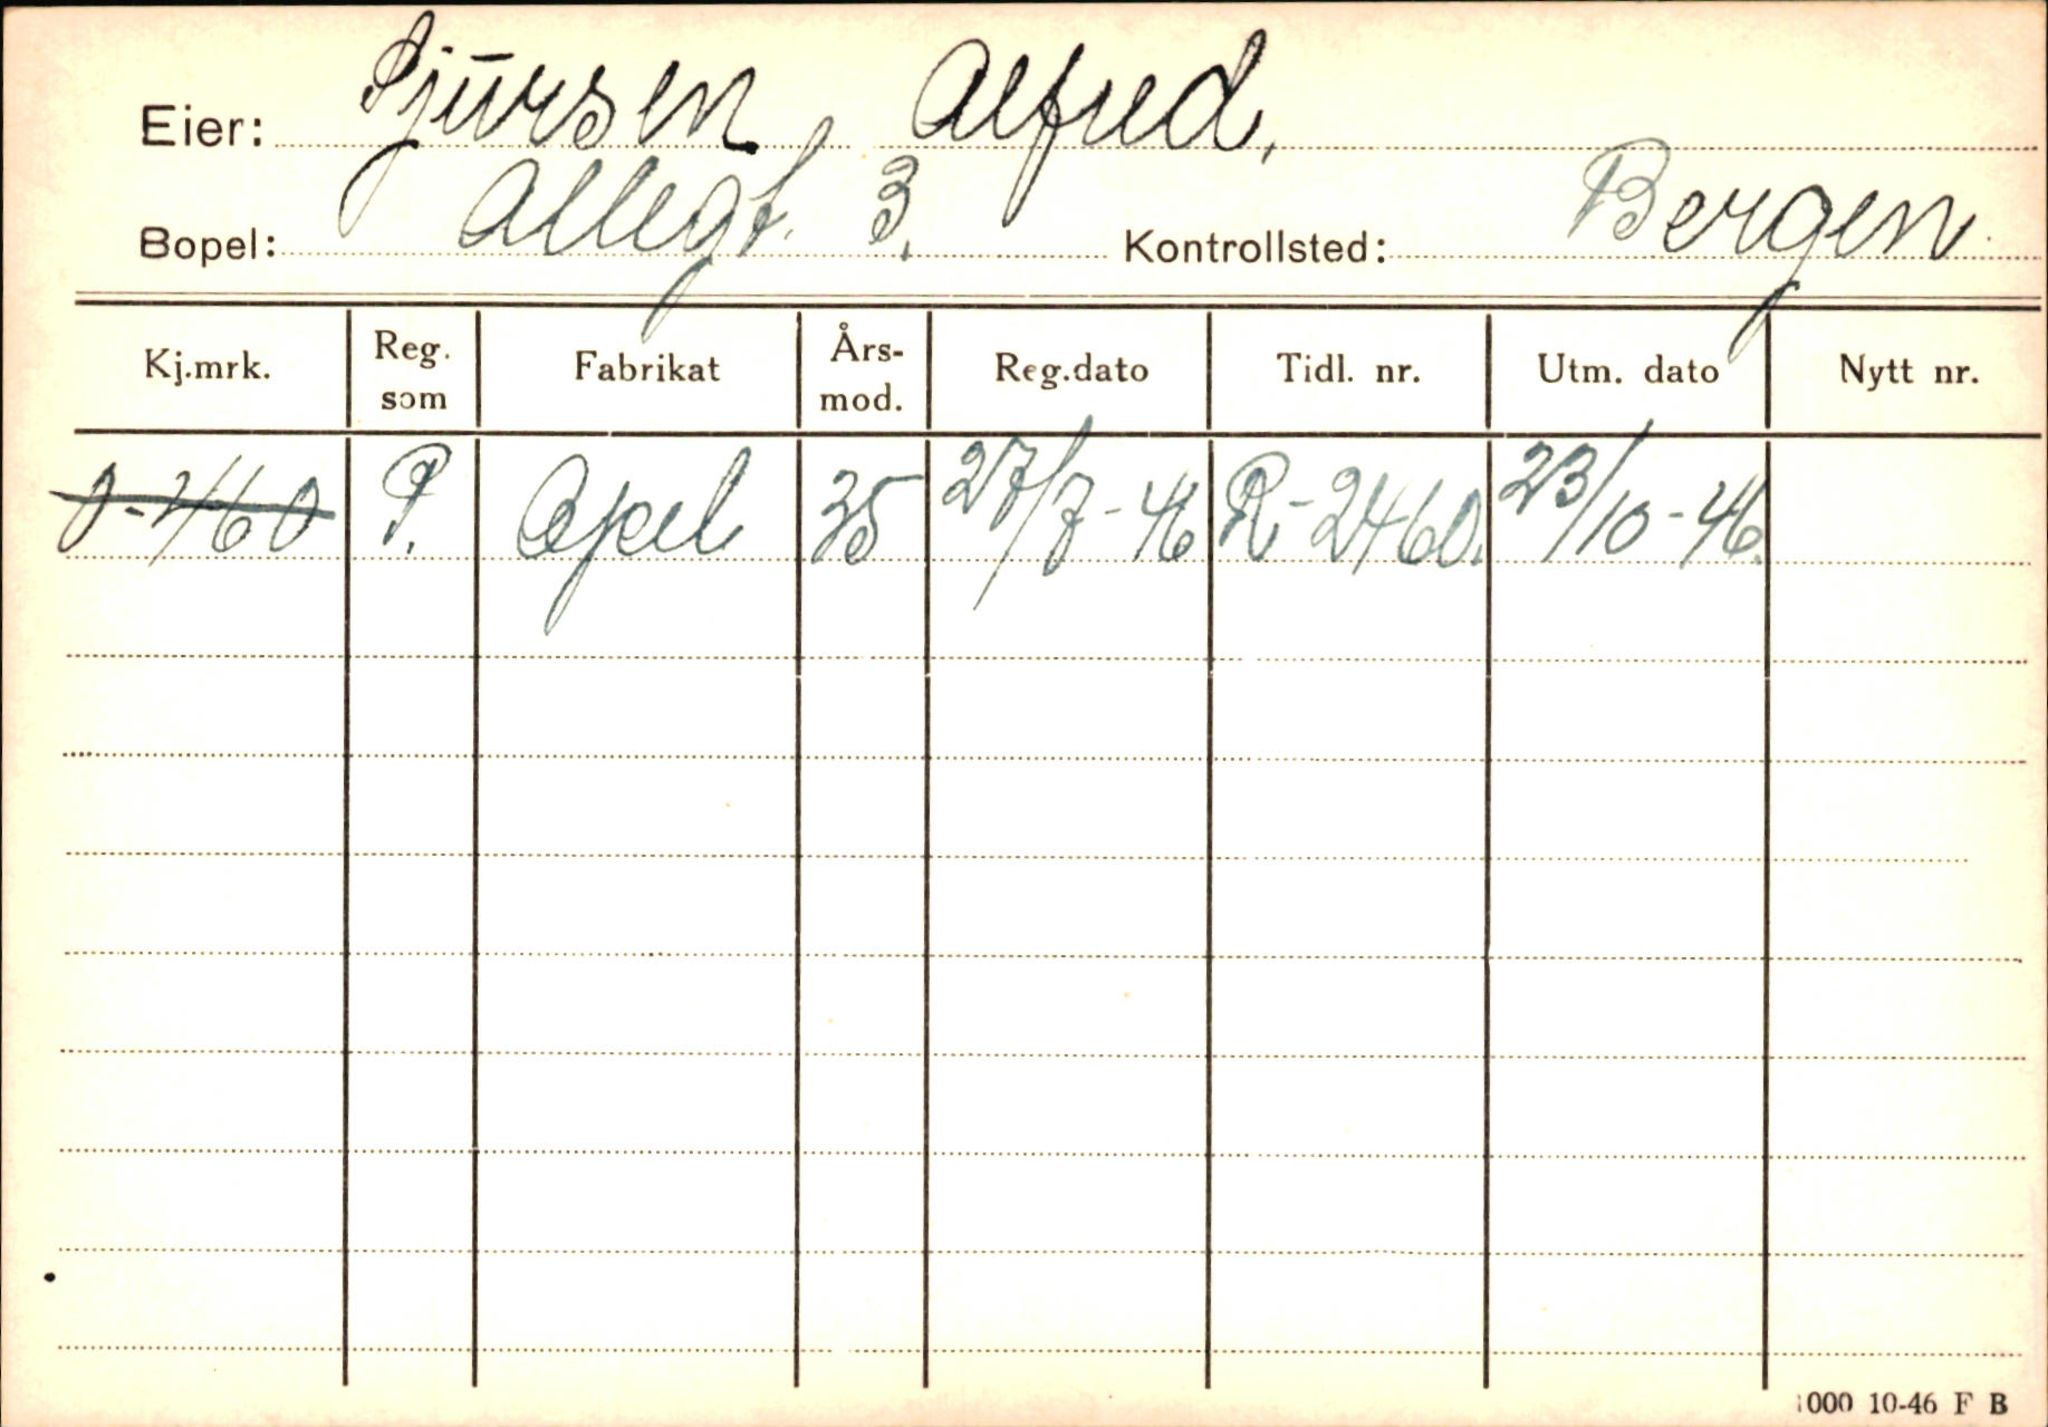 Eier: Sjursen, Alfred.
Bopel: Allegt. 3. Kontrollsted: Bergen.
Kj.mrk. Reg. som Fabrikat Års-mod. Reg.dato Tidl. nr. Utm. dato Nytt nr.
O-2460 P. Opel 35 27/7-46 R-2460. 23/10-46.
1000 10-46 F B